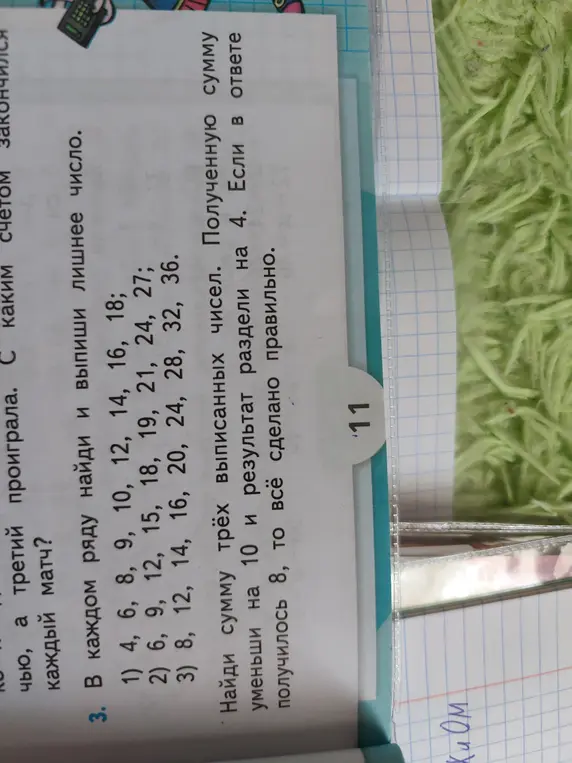 чью, а третий проиграла. С каким счётом закончился
каждый матч?
3. В каждом ряду найди и выпиши лишнее число.
1) 4, 6, 8, 9, 10, 12, 14, 16, 18;
2) 6, 9, 12, 15, 18, 19, 21, 24, 27;
3) 8, 12, 14, 16, 20, 24, 28, 32, 36.
Найди сумму трёх выписанных чисел. Полученную сумму
уменьши на 10 и результат раздели на 4. Если в ответе
получилось 8, то всё сделано правильно.
11